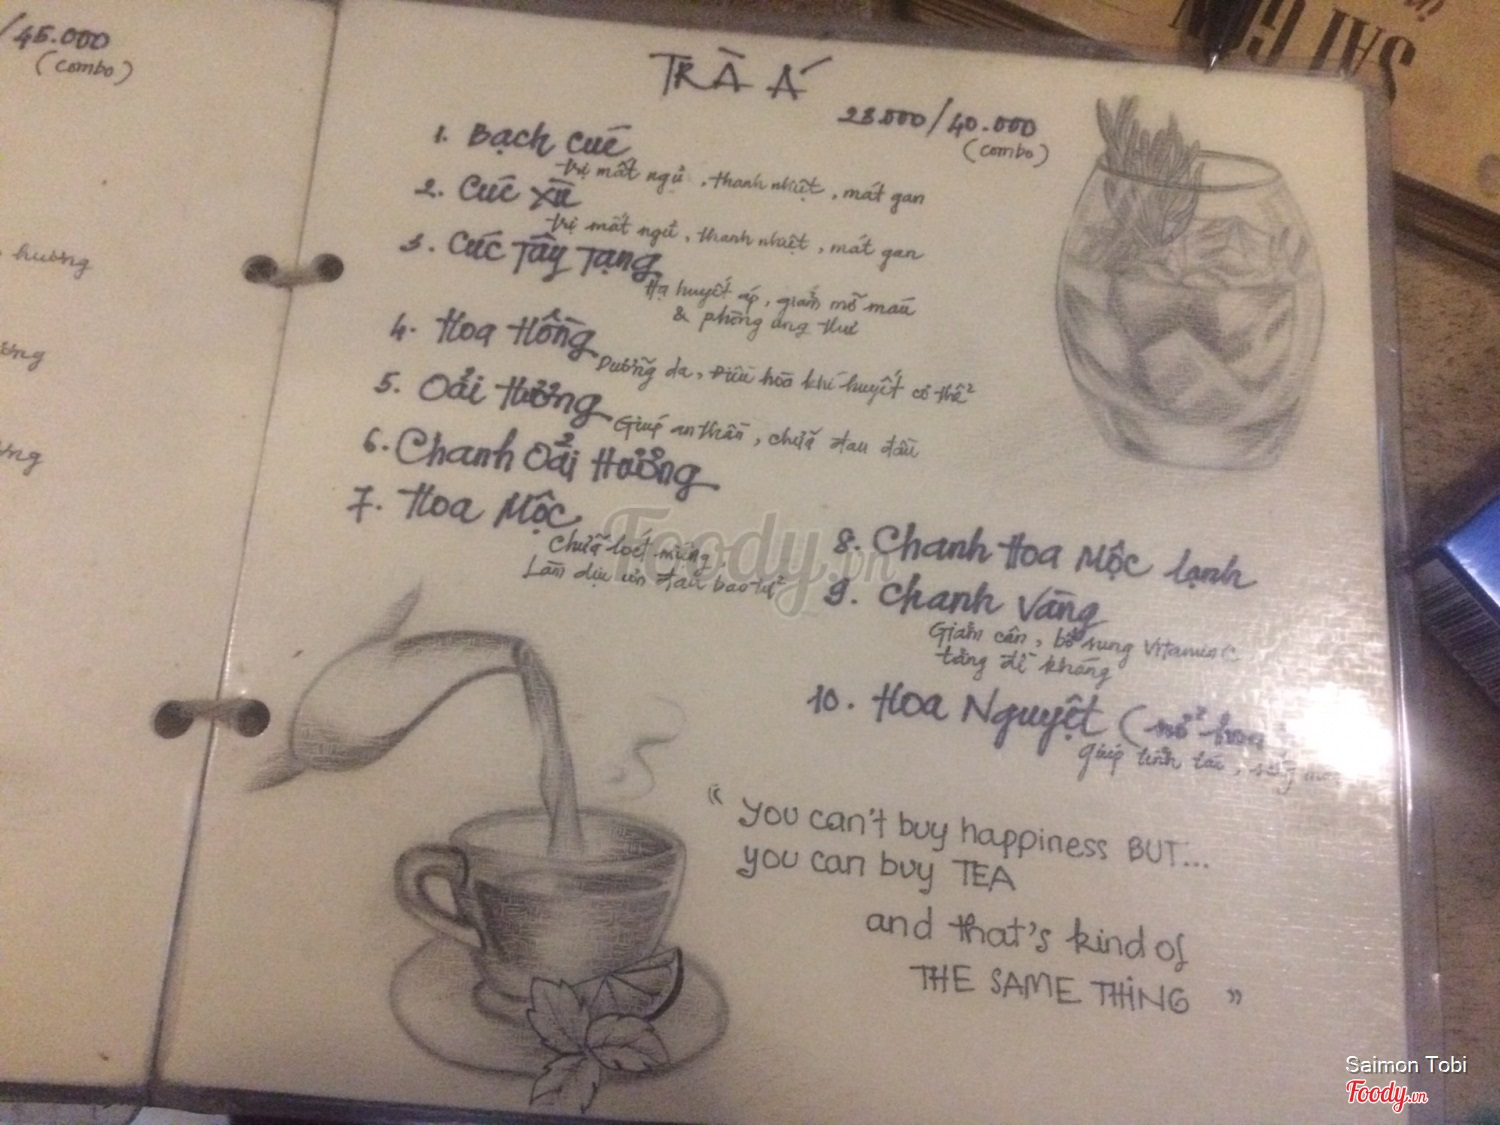 /45.000
(combo)
hương
ương
ương
SAI GÒN
TRÀ Á
28.000/40.000
(combo)
1. Bạch cúc
trị mất ngủ, thanh nhiệt, mát gan
2. Cúc Xù
trị mất ngủ, thanh nhiệt, mát gan
3. Cúc Tây Tạng
Hạ huyết áp, giảm mỡ máu
& phòng ung thư
4. Hoa Hồng
Dưỡng da, Điều hòa khí huyết cơ thể
5. Oải Hương
Giúp an thần, chữa đau đầu
6. Chanh Oải Hương
7. Hoa Mộc
Chữa loét miệng,
Làm dịu cơn đau bao tử
8. Chanh Hoa Mộc lạnh
9. Chanh Vàng
Giảm cân, bổ sung Vitamin C
tăng đề kháng
10. Hoa Nguyệt (nở hoa
giúp tỉnh táo, sáng
" you can't buy happiness BUT...
you can buy TEA
and that's kind of
THE SAME THING "
Foody.vn
Saimon Tobi
Foody.vn